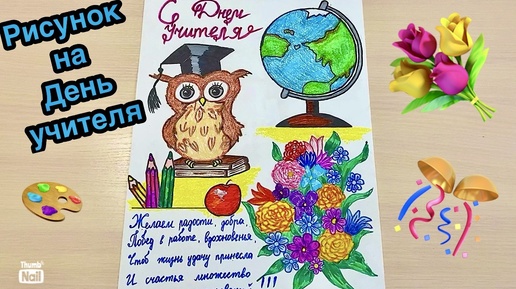 Рисунок
на
День
учителя
С Днем
Учителя
Желаем радости, добра,
Побед в работе, вдохновения,
Чтоб жизнь удачу принесла
И счастья множество
!!!
Thumb
Nail